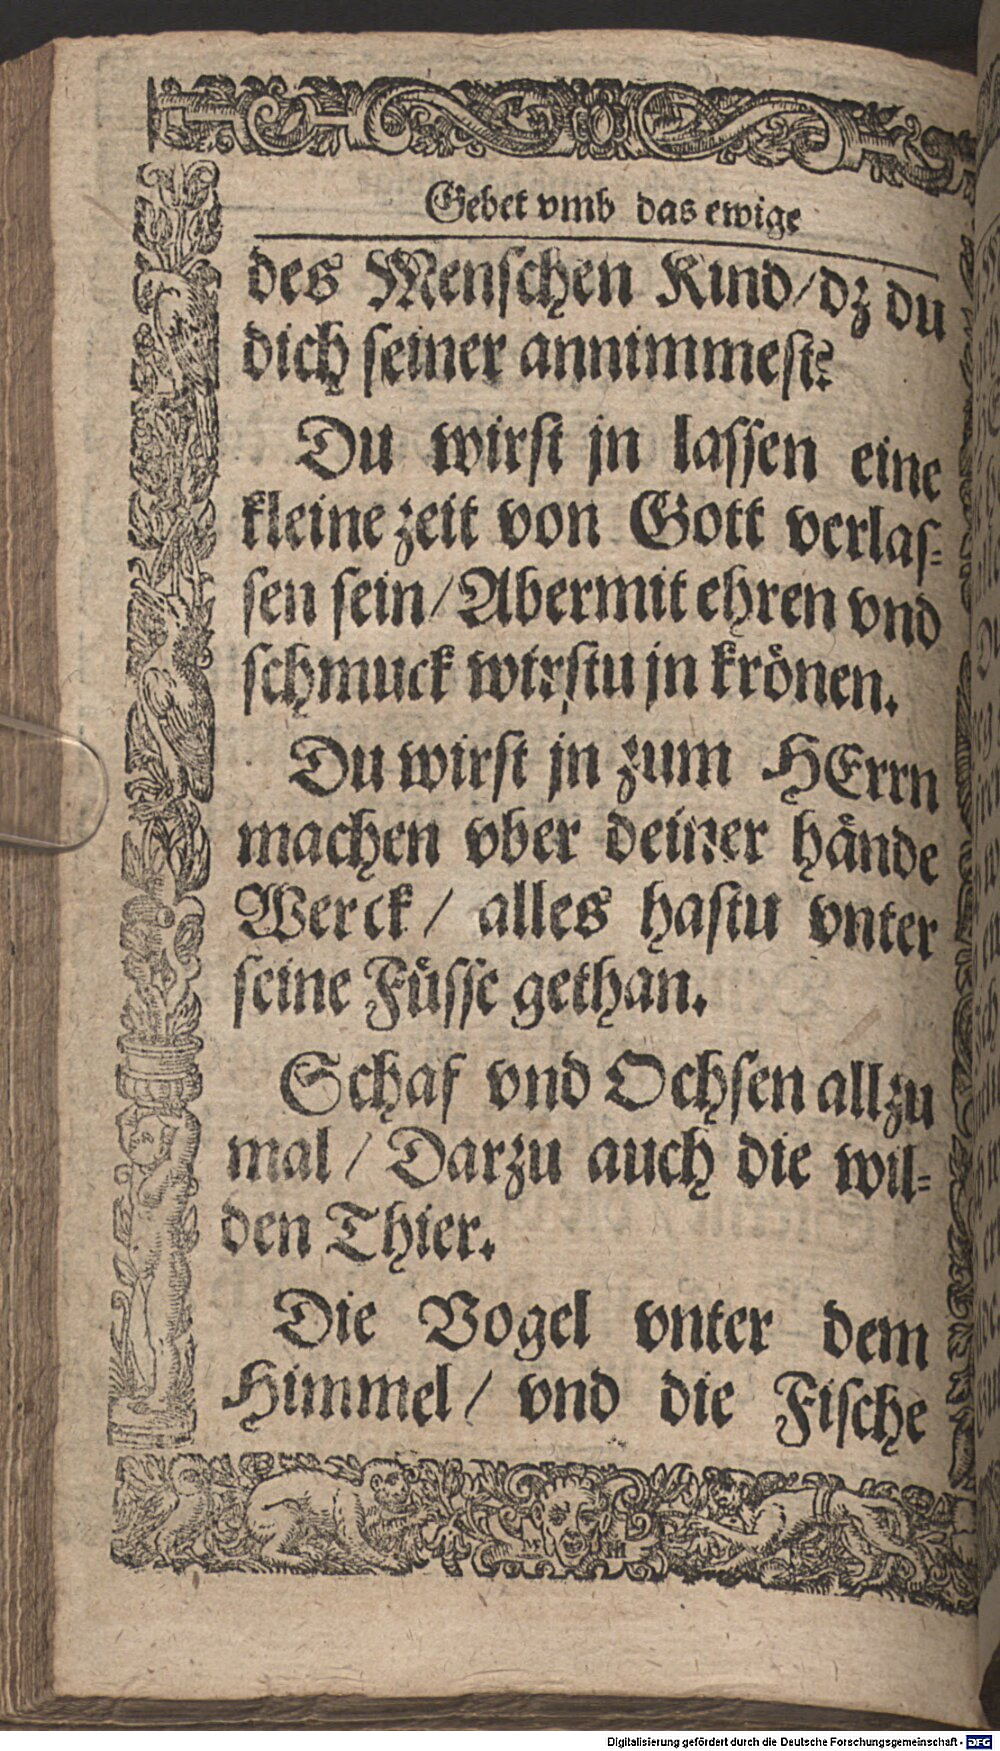 Gebet vmb das ewige
des Menschen Kind/dz du
dich seiner annimmest?
Du wirst jn lassen eine
kleine zeit von Gott verlas-
sen sein/Aber mit ehren vnd
schmuck wirstu jn krönen.
Du wirst jn zum HErrn
machen vber deiner hände
Werck/ alles hastu vnter
seine Füsse gethan.
Schaf vnd Ochsen allzu
mal/ Darzu auch die wil-
den Thier.
Die Vogel vnter dem
Himmel/ vnd die Fische
Digitalisierung gefördert durch die Deutsche Forschungsgemeinschaft - DFG